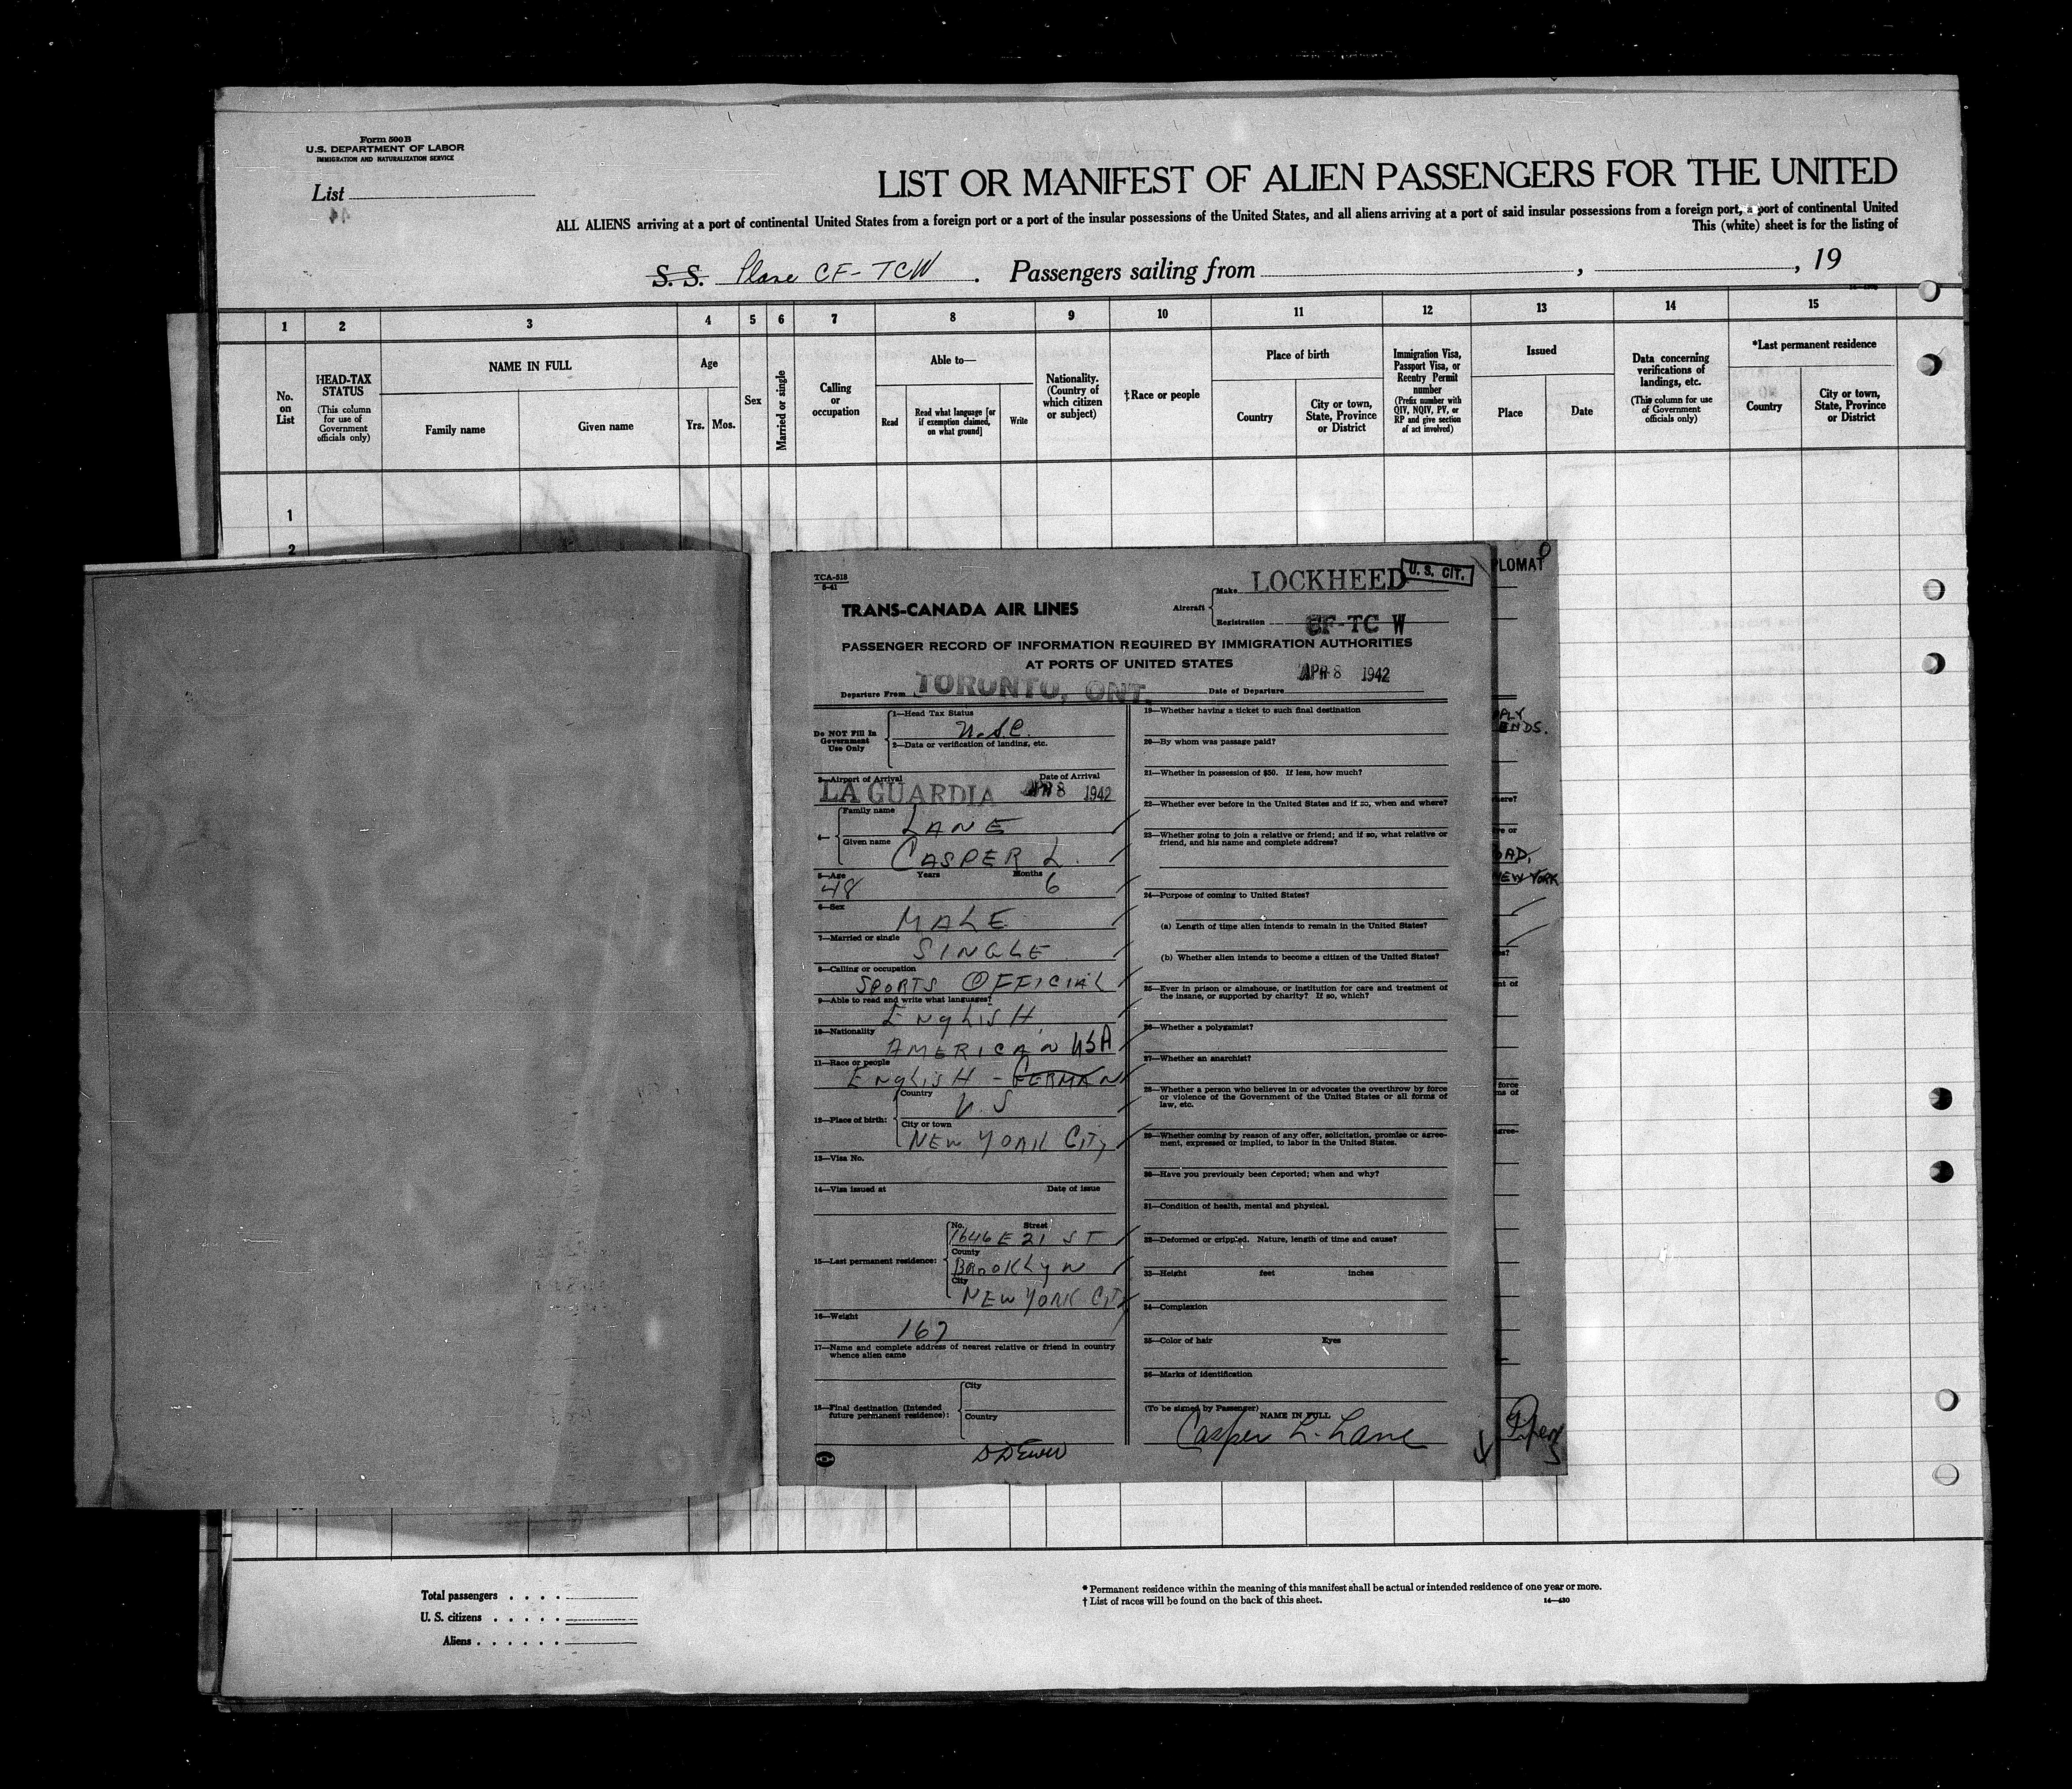 Form 500 B
U.S. DEPARTMENT OF LABOR
IMMIGRATION AND NATURALIZATION SERVICE
List
LIST OR MANIFEST OF ALIEN PASSENGERS FOR THE UNITED
ALL ALIENS arriving at a port of continental United States from a foreign port or a port of the insular possessions of the United States, and all aliens arriving at a port of said insular possessions from a foreign port, a port of continental United
This (white) sheet is for the listing of
S. S. Plane CF-TCW. Passengers sailing from , , 19
1 2 3 4 5 6 7 8 9 10 11 12 13 14 15
No. on List
HEAD-TAX STATUS
(This column for use of Government officials only)
NAME IN FULL
Family name
Given name
Age
Yrs. Mos.
Sex
Married or single
Calling or occupation
Able to—
Read
Read what language [or if exemption claimed, on what ground]
Write
Nationality. (Country of which citizen or subject)
†Race or people
Place of birth
Country
City or town, State, Province or District
Immigration Visa, Passport Visa, or Reentry Permit number
(Prefix number with QIV, NQIV, PV, or RP and give section of act involved)
Issued
Place
Date
Data concerning verifications of landings, etc.
(This column for use of Government officials only)
*Last permanent residence
Country
City or town, State, Province or District
1
2
TCA-518
5-41
TRANS-CANADA AIR LINES
Aircraft
Make LOCKHEED
U. S. CIT.
Registration CF-TC W
PASSENGER RECORD OF INFORMATION REQUIRED BY IMMIGRATION AUTHORITIES
AT PORTS OF UNITED STATES
Departure From TORONTO, ONT.
Date of Departure APR 8 1942
Do NOT Fill In
Government
Use Only
1—Head Tax Status
U.S.C.
2—Data or verification of landing, etc.
3—Airport of Arrival Date of Arrival
LA GUARDIA APR 8 1942
4—
Family name
LANE
Given name
CASPER L.
5—Age Years Months
48 6
6—Sex
MALE
7—Married or single
SINGLE
8—Calling or occupation
SPORTS OFFICIAL
9—Able to read and write what languages?
ENGLISH
10—Nationality
AMERICAN USA
11—Race or people
ENGLISH - GERMAN
12—Place of birth:
Country
U.S
City or town
NEW YORK CITY
13—Visa No.
14—Visa issued at Date of issue
15—Last permanent residence:
No. Street
1646 E 21 ST
County
BROOKLYN
City
NEW YORK CITY
16—Weight
167
17—Name and complete address of nearest relative or friend in country
whence alien came
18—Final destination (Intended
future permanent residence):
City
Country
19—Whether having a ticket to such final destination
20—By whom was passage paid?
21—Whether in possession of $50. If less, how much?
22—Whether ever before in the United States and if so, when and where?
23—Whether going to join a relative or friend; and if so, what relative or
friend, and his name and complete address?
24—Purpose of coming to United States?
(a) Length of time alien intends to remain in the United States?
(b) Whether alien intends to become a citizen of the United States?
25—Ever in prison or almshouse, or institution for care and treatment of
the insane, or supported by charity? If so, which?
26—Whether a polygamist?
27—Whether an anarchist?
28—Whether a person who believes in or advocates the overthrow by force
or violence of the Government of the United States or all forms of
law, etc.
29—Whether coming by reason of any offer, solicitation, promise or agree-
ment, expressed or implied, to labor in the United States.
30—Have you previously been deported; when and why?
31—Condition of health, mental and physical.
32—Deformed or crippled. Nature, length of time and cause?
33—Height feet inches
34—Complexion
35—Color of hair Eyes
36—Marks of identification
(To be signed by Passenger)
NAME IN FULL
Casper L. Lane
PLOMAT
ENDS.
OAD,
NEW YORK
force
Total passengers
U. S. citizens
Aliens
* Permanent residence within the meaning of this manifest shall be actual or intended residence of one year or more.
† List of races will be found on the back of this sheet.
14—430